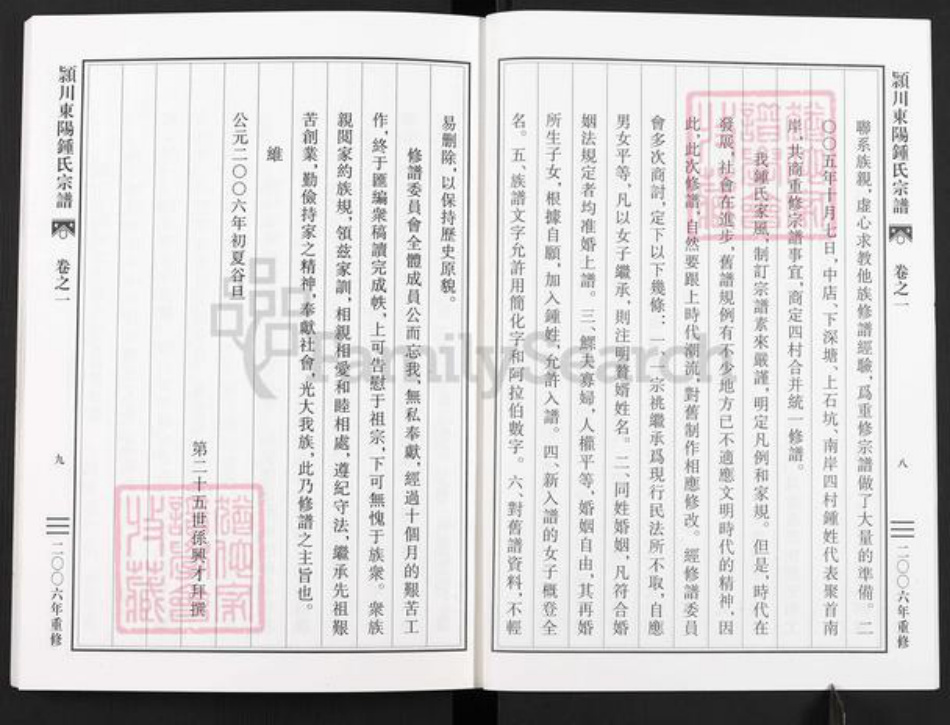 潁川東陽鍾氏宗譜 卷之一 八 二〇〇六年重修
聯系族親，虛心求教他族修譜經驗，爲重修宗譜做了大量的準備。二
〇〇五年十月七日，中店、下深塘、上石坑、南岸四村鍾姓代表聚首南
岸，共商重修宗譜事宜，商定四村合并統一修譜。
我鍾氏家風，制訂宗譜素來嚴謹，明定凡例和家規。但是，時代在
發展，社會在進步，舊譜規例有不少地方已不適應文明時代的精神，因
此，此次修譜，自然要跟上時代潮流，對舊制作相應修改。經修譜委員
會多次商討，定下以下幾條：一、宗祧繼承爲現行民法所不取，自應
男女平等，凡以女子繼承，則注明贅婿姓名。二、同姓婚姻，凡符合婚
姻法規定者均准婚上譜。三、鰥夫寡婦，人權平等，婚姻自由，其再婚
所生子女，根據自願，加入鍾姓，允許入譜。四、新入譜的女子概登全
名。五、族譜文字允許用簡化字和阿拉伯數字。六、對舊譜資料，不輕
易删除，以保持歷史原貌。
修譜委員會全體成員公而忘我、無私奉獻，經過十個月的艱苦工
作，終于匯編衆稿讀完成帙，上可告慰于祖宗，下可無愧于族衆。衆族
親閱家約族規，領兹家訓，相親相愛和睦相處，遵紀守法，繼承先祖艱
苦創業，勤儉持家之精神，奉獻社會，光大我族，此乃修譜之主旨也。
維
公元二〇〇六年初夏谷旦
第二十五世孫興才拜撰
潁川東陽鍾氏宗譜 卷之一 九 二〇〇六年重修
FamilySearch